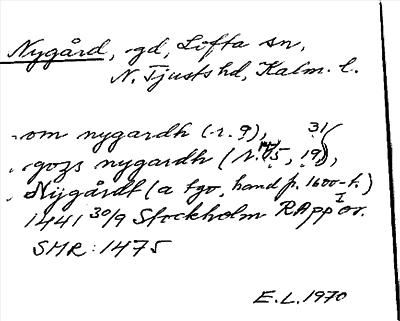 Nygård, -gd, Lofta sn,
N. Tjusts hd, Kalm. l.
-om nygardh (r. 9),
31
-gozs nygardh (r. 15, 19),
Nÿgårdt (a tgo, hand fr. 1600-t.)
1441 30/9 Stockholm RApp I or.
SMR: 1475
E.L. 1970